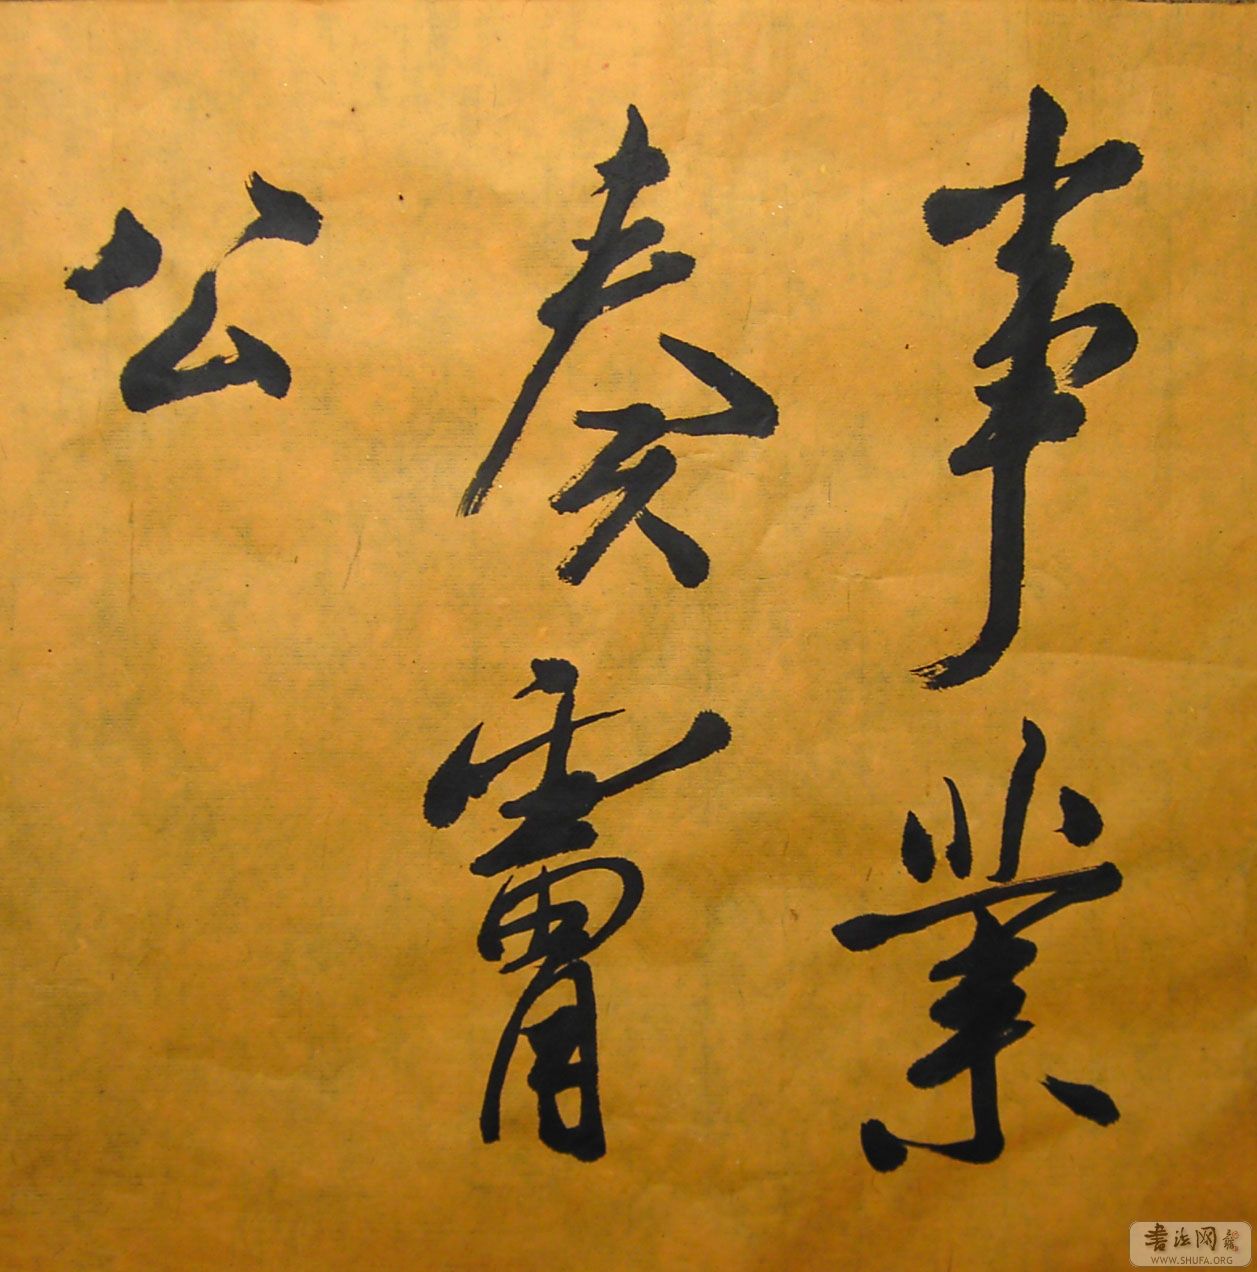 事業
奏膚
公
書法网
WWW.SHUFA.ORG